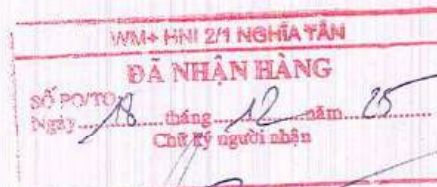 WM+ HNI 2/1 NGHĨA TÂN
ĐÃ NHẬN HÀNG
SỐ PO/TO
Ngày 18 tháng 12 năm 25
Chữ ký người nhận